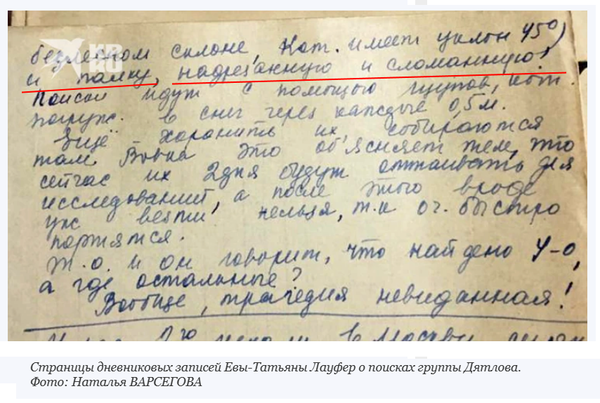 безлесном склоне, Кот. имеет уклон 45°)
и палку, надрезанную и сломанную!
KP
Поиски идут с помощью щупов, кот.
погруж. в снег через каждые 0,5 м.
Ещё хоронить их собираются
там. Вовка это объясняет тем, что
сейчас их 2 дня будут оттаивать для
исследований, а после этого вроде
уже везти нельзя, т.к оч. быстро
портятся.
Т.о. и он говорит, что найдено 4-о,
а где остальные?
Вообще, трагедия невиданная!
в Москви
Страницы дневниковых записей Евы-Татьяны Лауфер о поисках группы Дятлова.
Фото: Наталья ВАРСЕГОВА